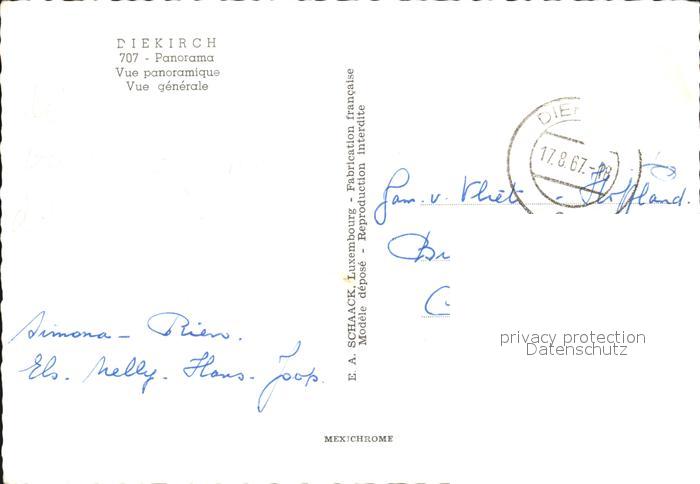 DIEKIRCH
707 - Panorama
Vue panoramique
Vue générale
E. A. SCHAACK, Luxembourg - Fabrication française
Modèle déposé - Reproduction interdite
DIE
17.8.67.-18
Fam. v. Vliet -
Simona - Rien.
Els. Nelly. Hans. Joop.
privacy protection
Datenschutz
MEXICHROME